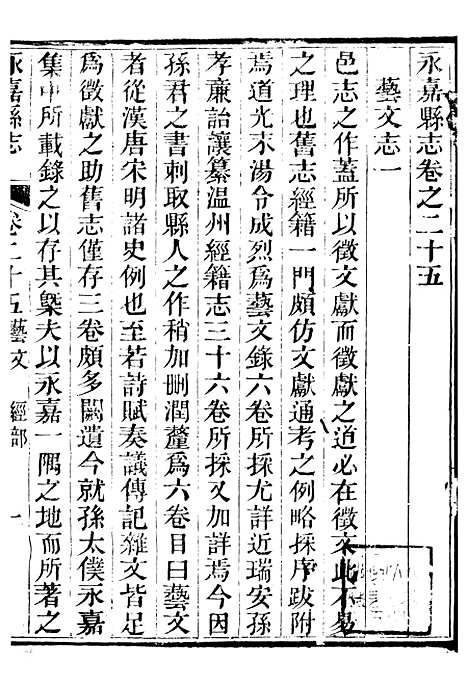 永嘉縣志卷之二十五
藝文志一
邑志之作蓋所以徵文獻而徵獻之道必在徵文此不易
之理也舊志經籍一門頗仿文獻通考之例略採序跋附
焉道光末湯令成烈爲藝文錄六卷所採尤詳近瑞安孫
孝廉詒讓纂温州經籍志三十六卷所採又加詳焉今因
孫君之書刺取縣人之作稍加删潤釐爲六卷目曰藝文
者從漢唐宋明諸史例也至若詩賦奏議傳記雜文皆足
爲徵獻之助舊志僅存三卷頗多闕遺今就孫太僕永嘉
集中所載錄之以存其槩夫以永嘉一隅之地而所著之
永嘉縣志
卷二十五藝文 經部
一